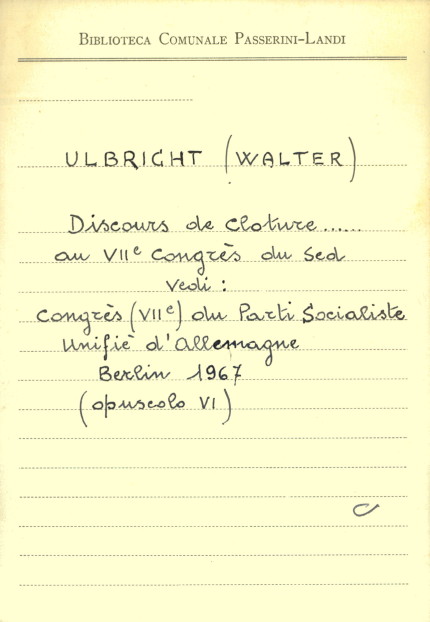 BIBLIOTECA COMUNALE PASSERINI-LANDI
ULBRIGHT (WALTER)
Discours de cloture......
au VIIe Congrès du Sed
vedi :
Congrès (VIIe) du Parti Socialiste
Unifiè d'Allemagne
Berlin 1967
(opuscolo VI)
C